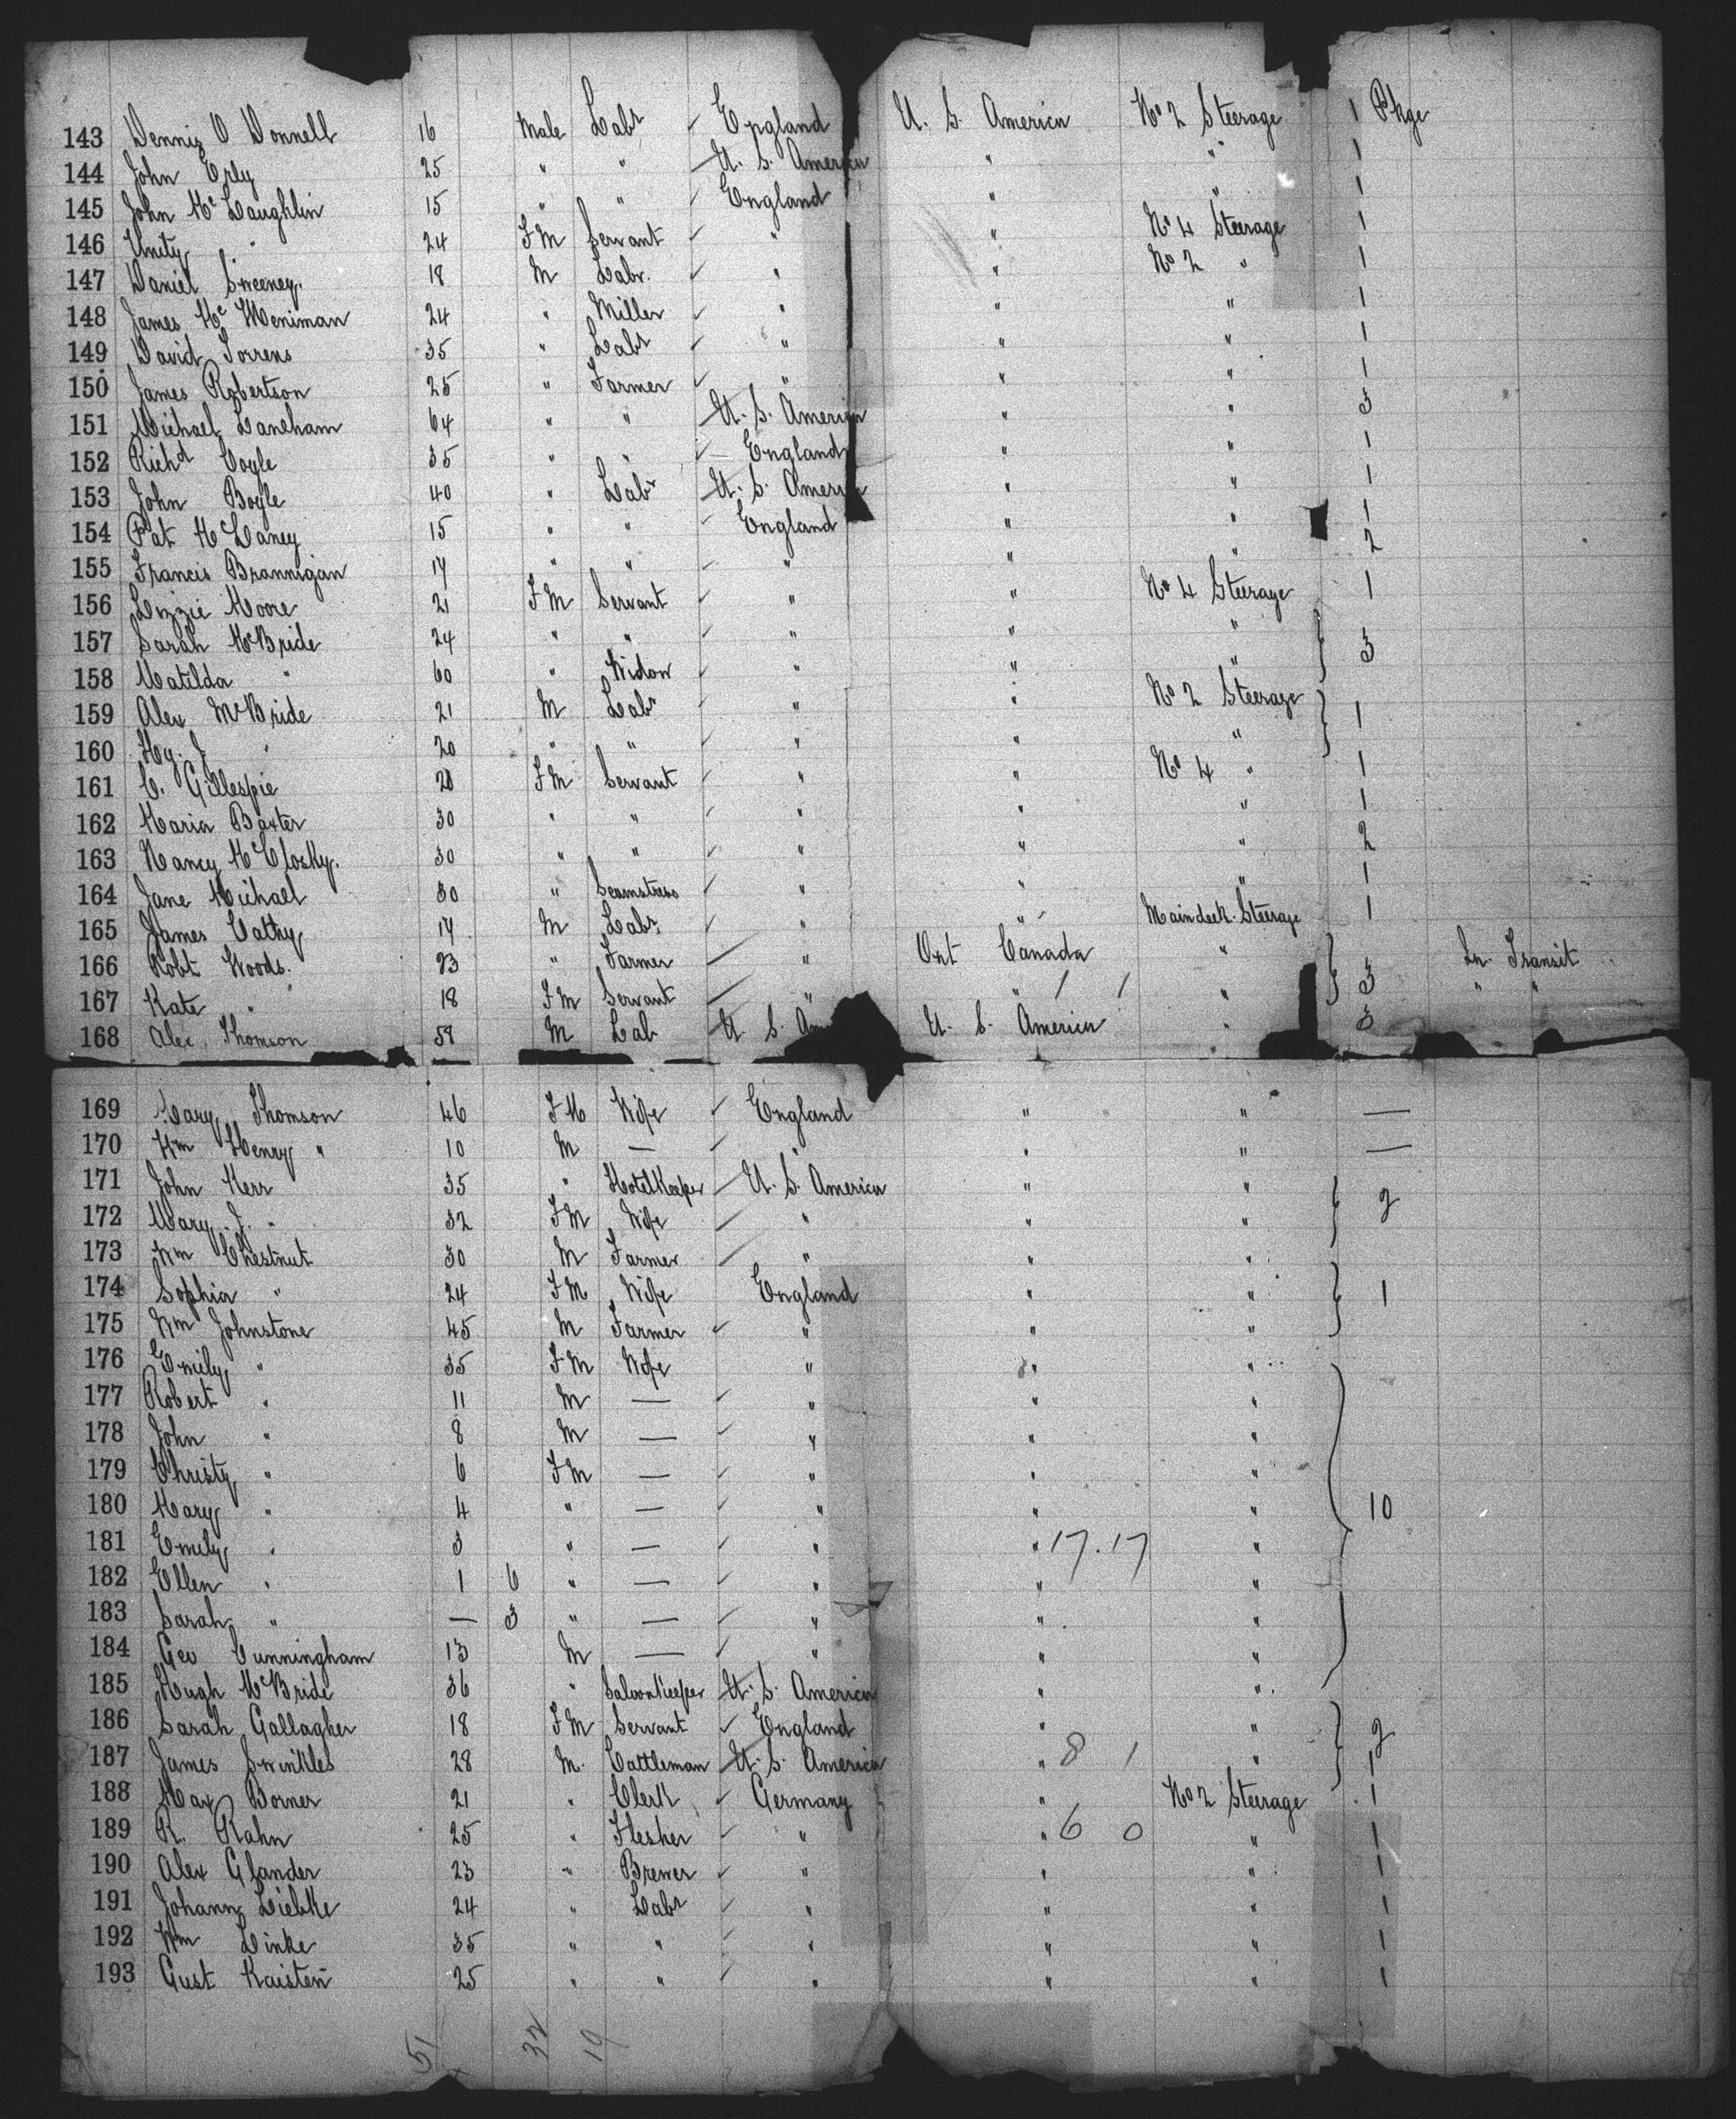 143 Dennis O Donnell 16 Male Labr ✓ England U. S. America No 2 Steerage 1 Pkge
144 John Erly 25 " " U. S. America " " 1
145 John McLaughlin 15 " " ✓ England " " 1
146 Unity " 24 F M Servant ✓ " " No 4 Steerage 1
147 Daniel Sweeney. 18 M Labr. ✓ " " No 2 " 1
148 James Mc Meniman 24 " Miller ✓ " " " 1
149 David Torrens 35 " Labr ✓ " " " 1
150 James Robertson 25 " Farmer ✓ " " " 1
151 Michael Laneham 64 " " U. S. America " " 3
152 Richd Coyle 35 " " ✓ England " " 1
153 John Boyle 40 " Labr U. S. America " " 1
154 Pat McLaney 15 " " ✓ England " " 1
155 Francis Brannigan 17 " " ✓ " " " 2
156 Lizzie Moore 21 F M Servant ✓ " " No 4 Steerage 1
157 Sarah McBride 24 " " ✓ " " " 3
158 Matilda " 60 " Widow ✓ " " "
159 Alex McBride 21 M Labr ✓ " " No 2 Steerage 1
160 Hy. J " 20 " " ✓ " " "
161 C. Gillespie 20 F M Servant ✓ " " No 4 " 1
162 Maria Baxter 30 " " ✓ " " " 1
163 Nancy McClosky. 30 " " ✓ " " " 2
164 Jane Michael 30 " Seamstress ✓ " " " 1
165 James Cathy 17 M Labr. ✓ " " Maindeck Steerage 1
166 Robt Woods. 23 " Farmer " Ont Canada " 3 In Transit
167 Kate " 18 F M Servant " " 1 1 " " "
168 Alex Thomson 58 M Lab U S Am U. S. America " 3
169 Mary Thomson 46 F M Wife ✓ England " " —
170 Wm Henry " 10 M — ✓ " " " —
171 John Kerr 35 " Hotel Keeper U. S. America " " 2
172 Mary J. " 32 F M Wife " " "
173 Wm Chestnut 30 M Farmer " " " 1
174 Sophia " 24 F M Wife England " "
175 Wm Johnstone 45 M Farmer ✓ " " "
176 Emily " 35 F M Wife " " "
177 Robert " 11 M — ✓ " " "
178 John " 8 M — ✓ " " "
179 Christy " 6 F M — ✓ " " "
180 Mary " 4 " — " " " 10
181 Emily " 3 " — ✓ " " 17.17 "
182 Ellen " 1 6 " — ✓ " " "
183 Sarah " — 3 " — ✓ " " "
184 Geo Cunningham 13 M — ✓ " " "
185 Hugh McBride 36 " Saloon Keeper U. S. America " "
186 Sarah Gallagher 18 F M Servant ✓ England " " 2
187 James Swinkles 28 M. Cattleman U. S. America " 8 1 " 1
188 Max Borner 21 " Clerk ✓ Germany " No 2 Steerage 1
189 R. Rahn 25 " Flesher ✓ " " 6 0 " 1
190 Alex Glander 23 " Brewer ✓ " " " 1
191 Johann Liebke 24 " Labr ✓ " " " 1
192 Wm Linke 35 " " ✓ " " " 1
193 Gust Kaisten 25 " " ✓ " " " 1
51 32 19